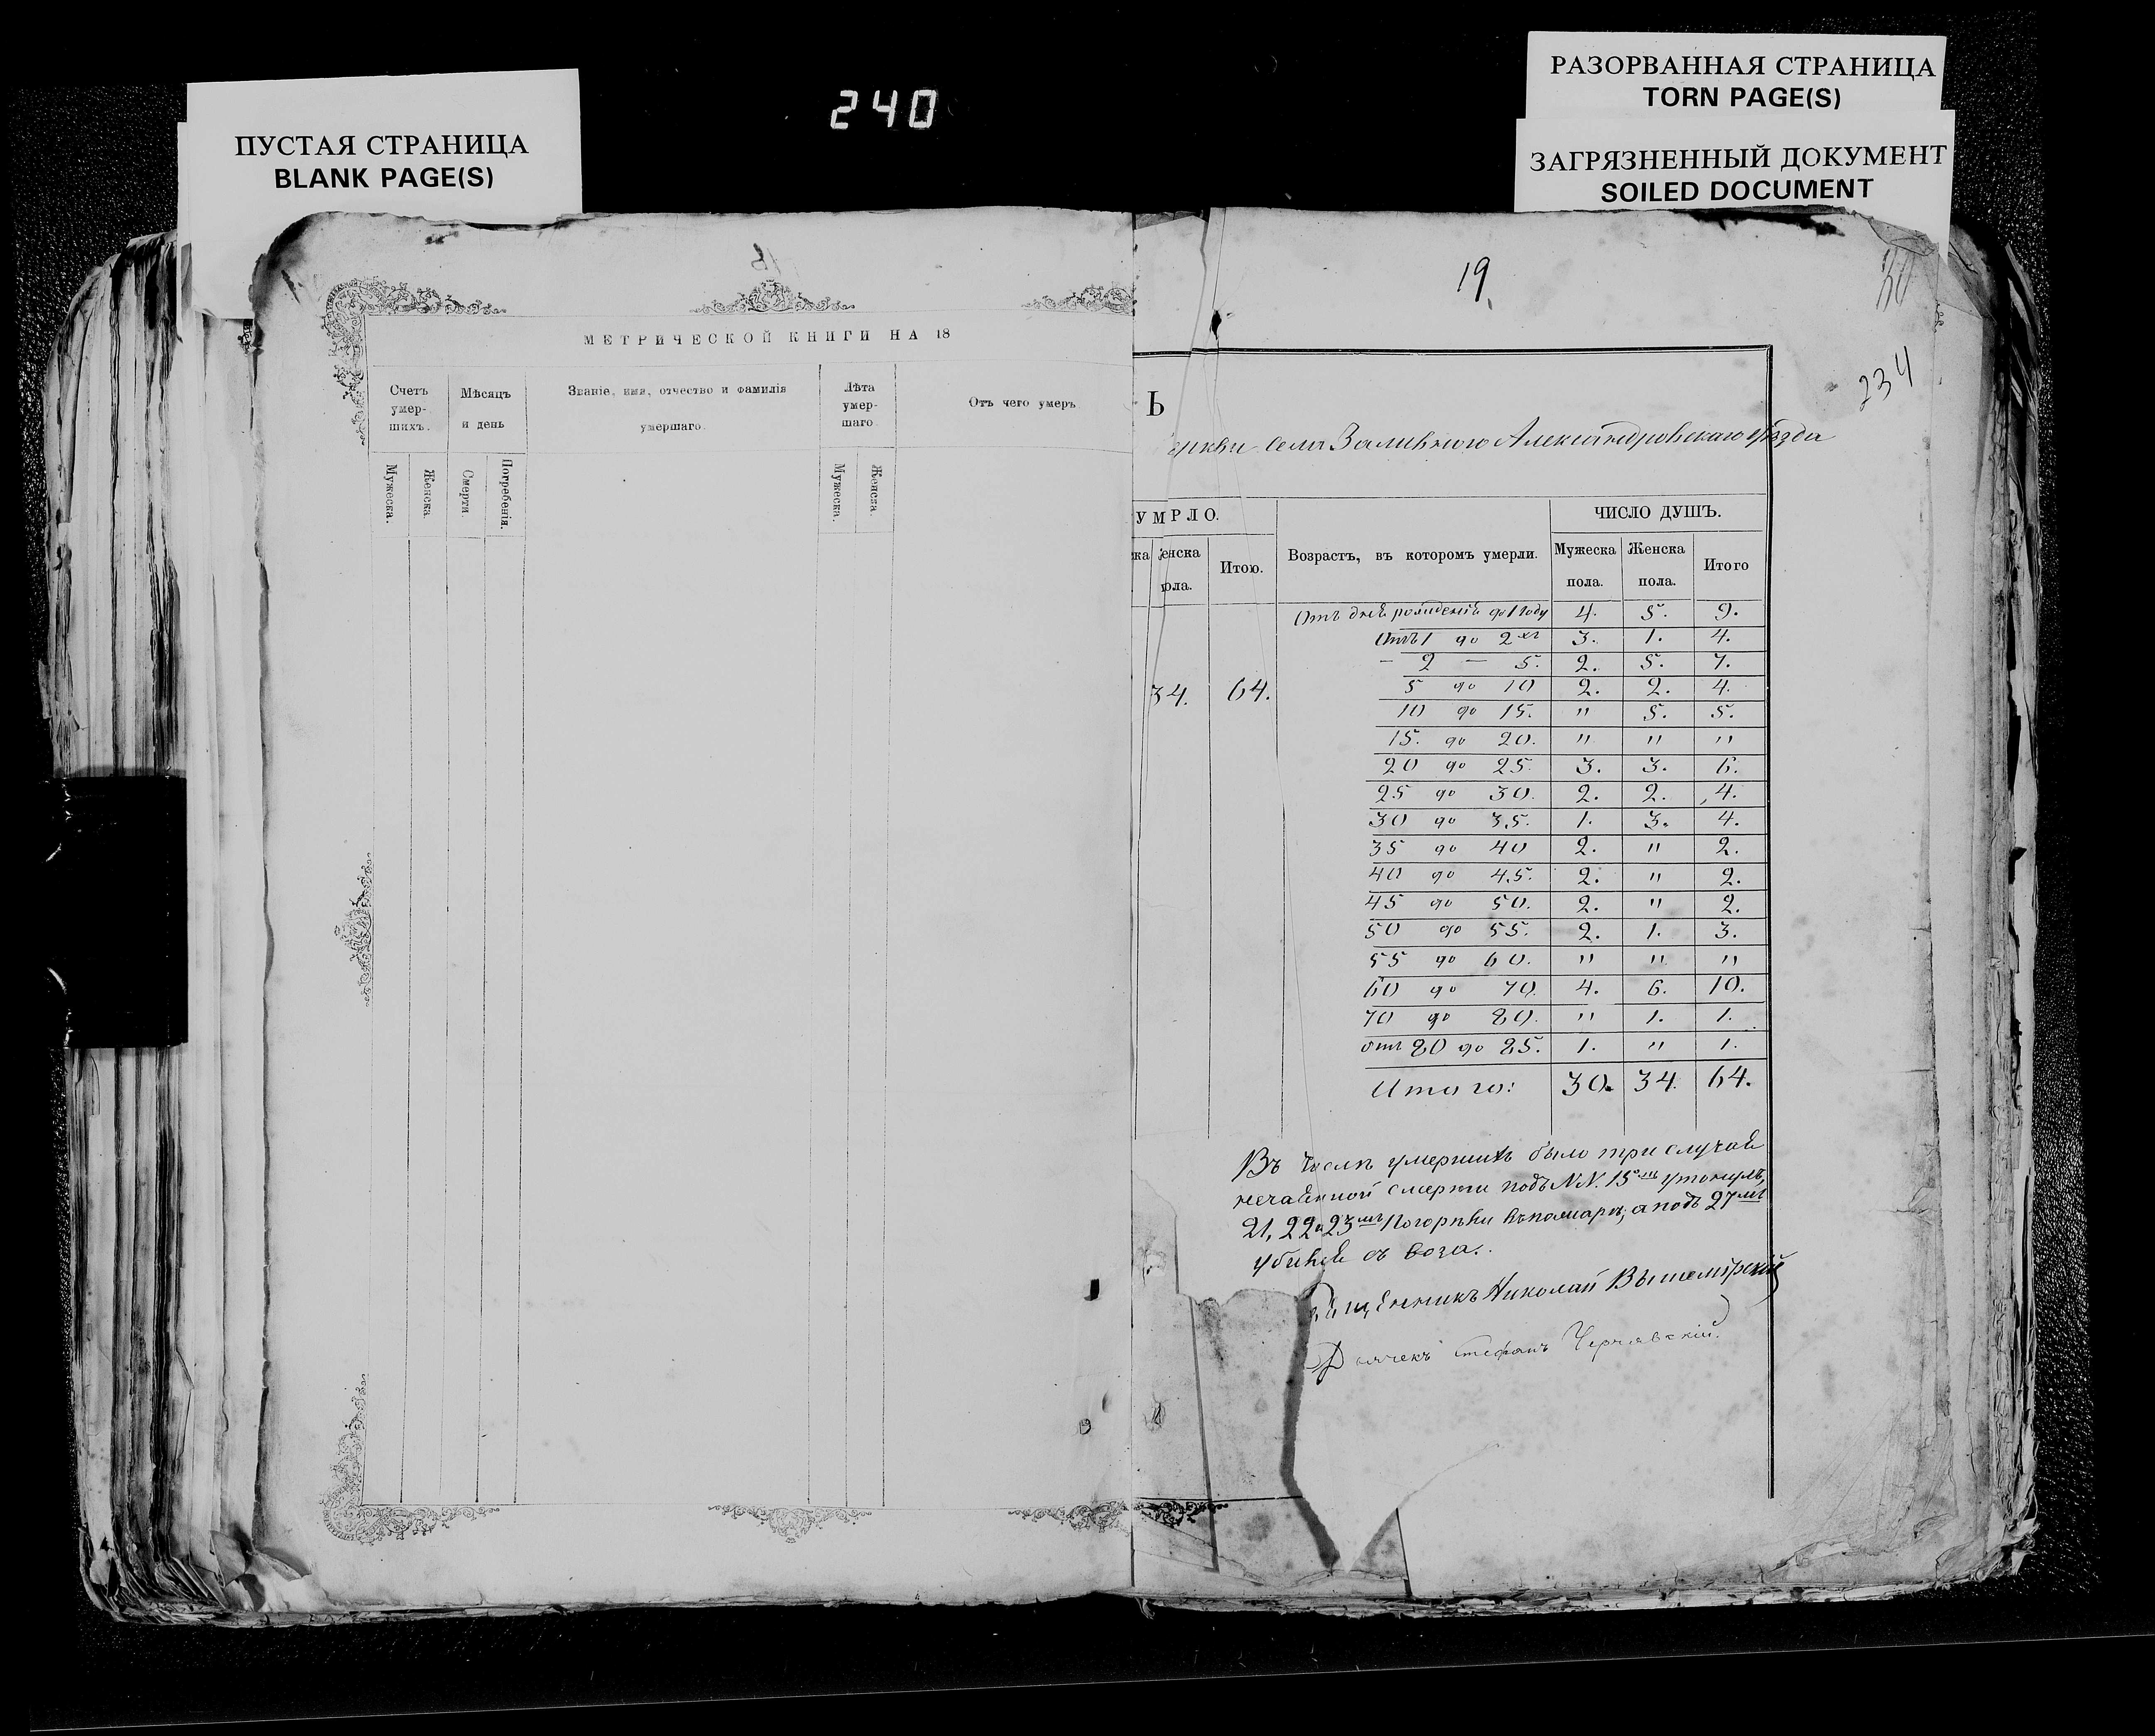 ПУСТАЯ СТРАНИЦА
BLANK PAGE(S)
240
РАЗОРВАННАЯ СТРАНИЦА
TORN PAGE(S)
ЗАГРЯЗНЕННЫЙ ДОКУМЕНТ
SOILED DOCUMENT
МЕТРИЧЕСКОЙ КНИГИ НА 18
Счетъ умер- шихъ.
Мѣсяцъ и день
Званіе, имя, отчество и фамилія умершаго.
Лѣта умер- шаго.
Отъ чего умеръ
Мужеска.
Женска.
Смерти.
Погребенія.
Мужеска.
Женска.
19.
30
234
Ь
еркви села Заливного Александровскаго уѣзда
УМРЛО.
ЧИСЛО ДУШЪ.
ка
енска пола.
Итою.
Возрастъ, въ которомъ умерли.
Мужеска пола.
Женска пола.
Итого
34. 64.
Отъ дней рожденія до 1 году 4. 5. 9.
Отъ 1 до 2хъ 3. 1. 4.
– 2 — 5. 2. 5. 7.
5 до 10 2. 2. 4.
10 до 15. " 5. 5.
15. до 20. " " "
20 до 25. 3. 3. 6.
25 до 30. 2. 2. 4.
30 до 35. 1. 3. 4.
35 до 40 2. " 2.
40 до 45. 2. " 2.
45 до 50. 2. " 2.
50 до 55. 2. 1. 3.
55 до 60. " " "
60 до 70. 4. 6. 10.
70 до 80. " 1. 1.
отъ 80 до 85. 1. " 1.
Итого: 30. 34. 64.
Въ числѣ умершихъ было три случая
нечаянной смерти подъ NN. 15мъ утонулъ,
21, 22 и 23мъ погорѣли въ пожарѣ, а подъ 27мъ
убився съ воза.
Священникъ Николай Вышемірскій
Дьячекъ Стефанъ Чернявскій.